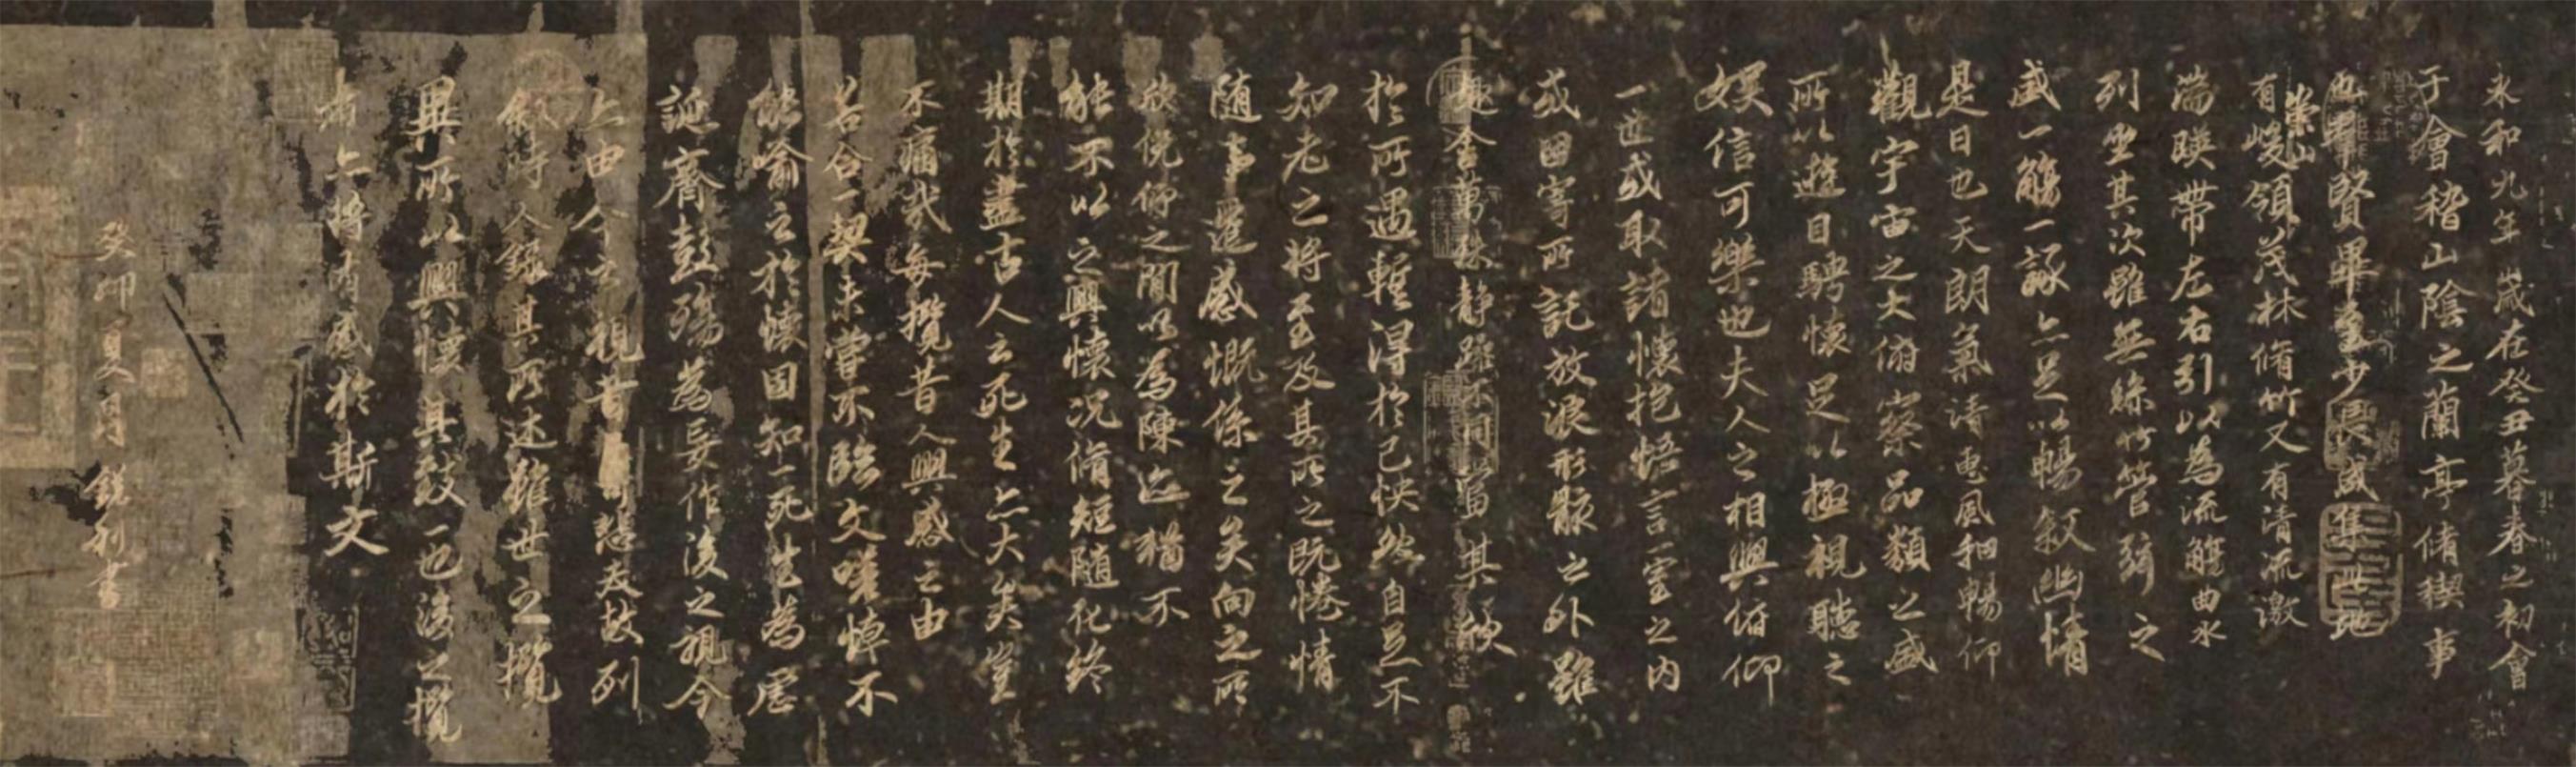 永和九年歲在癸丑暮春之初會
于會稽山陰之蘭亭脩稧事
也群賢畢至少長咸集此地
有崇山峻領茂林脩竹又有清流激
湍暎帶左右引以為流觴曲水
列坐其次雖無絲竹管弦之
盛一觴一詠亦足以暢敘幽情
是日也天朗氣清惠風和暢仰
觀宇宙之大俯察品類之盛
所以遊目騁懷足以極視聽之
娛信可樂也夫人之相與俯仰
一世或取諸懷抱悟言一室之內
或因寄所託放浪形骸之外雖
趣舍萬殊靜躁不同當其欣
於所遇暫得於己怏然自足不
知老之將至及其所之既惓情
隨事遷感慨係之矣向之所
欣俛仰之間以為陳迹猶不
能不以之興懷況脩短隨化終
期於盡古人云死生亦大矣豈
不痛哉每攬昔人興感之由
若合一契未嘗不臨文嗟悼不
能喻之於懷固知一死生為虛
誕齊彭殤為妄作後之視今
亦由今之視昔悲夫故列
敘時人錄其所述雖世殊事
異所以興懷其致一也後之攬
者亦將有感於斯文
癸卯夏月 書